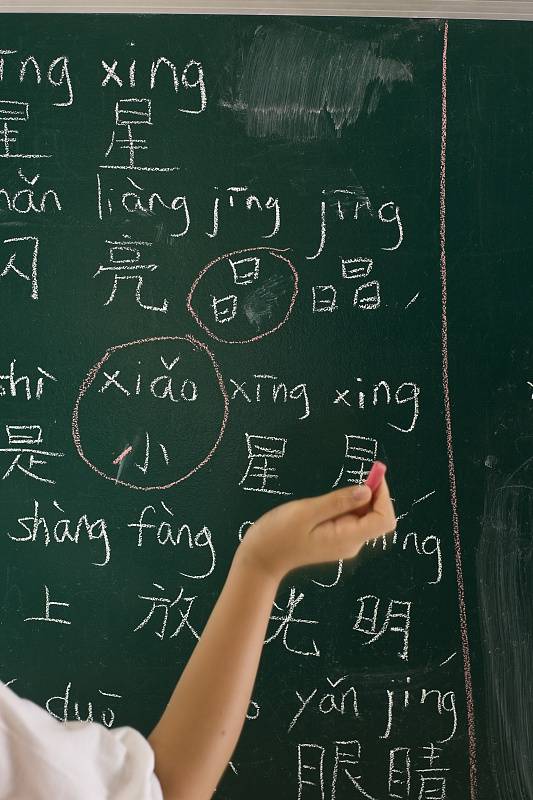 īng xing
星 星
hǎn liàng jīng jīng
闪 亮 日日 晶
hì xiǎo xīng xing
是 小 星 星
shàng fàng
上 放 光 明
duō yǎn jing
眼 睛